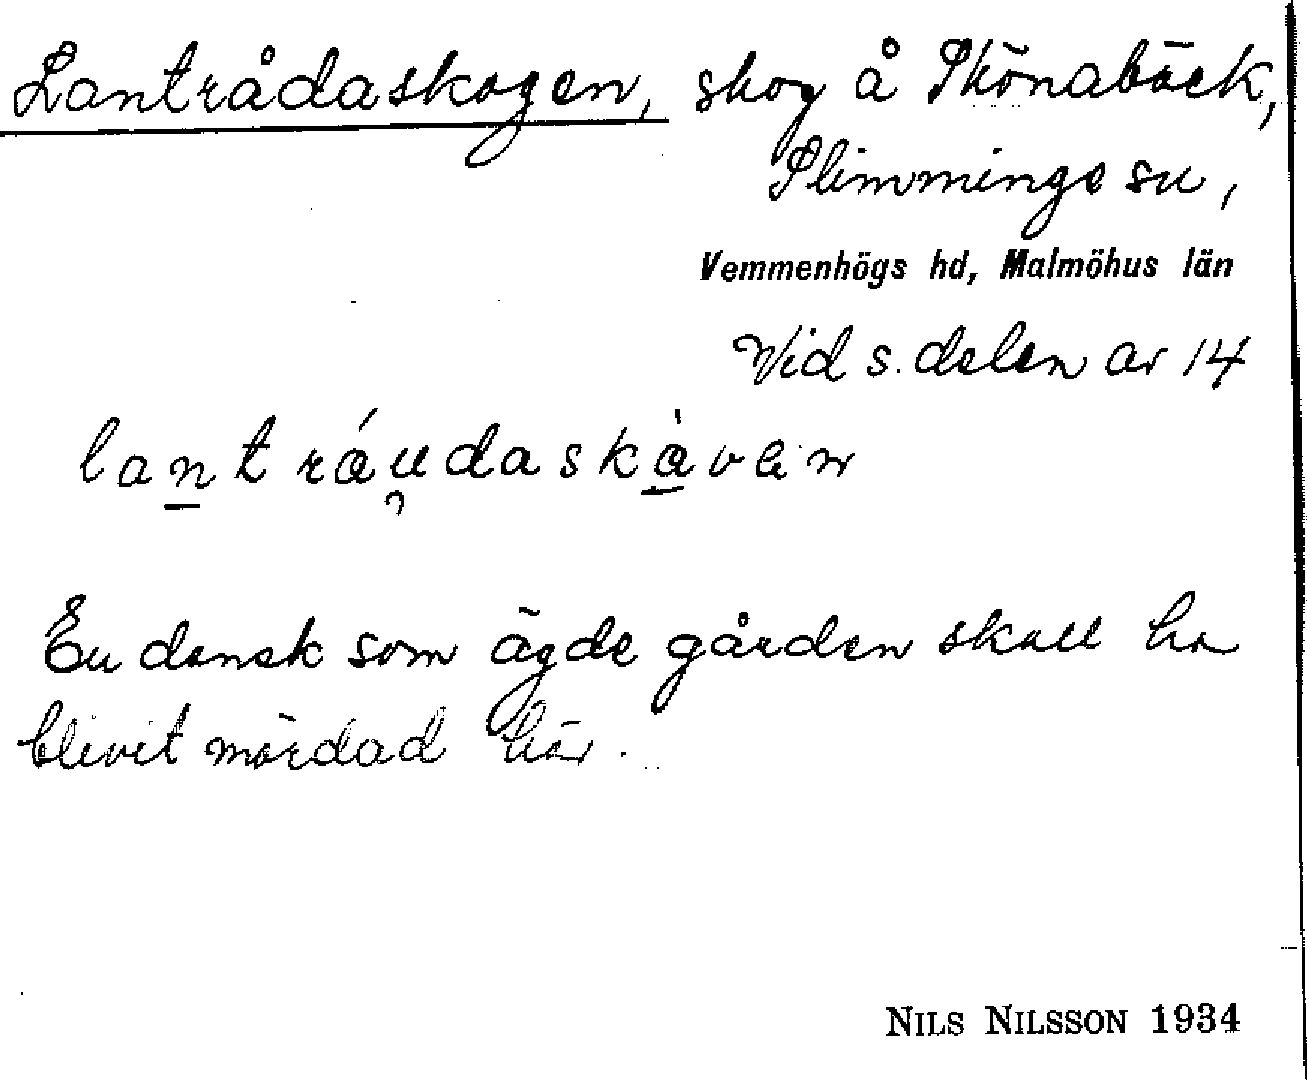 Lantrådaskogen, skog å Skönabäck,
Slimminge sn,
Vemmenhögs hd, Malmöhus län
Vid s. delen av 14
lantráu̯daskàvan
En dansk som ägde gården skall ha
blivit mördad här.
NILS NILSSON 1934